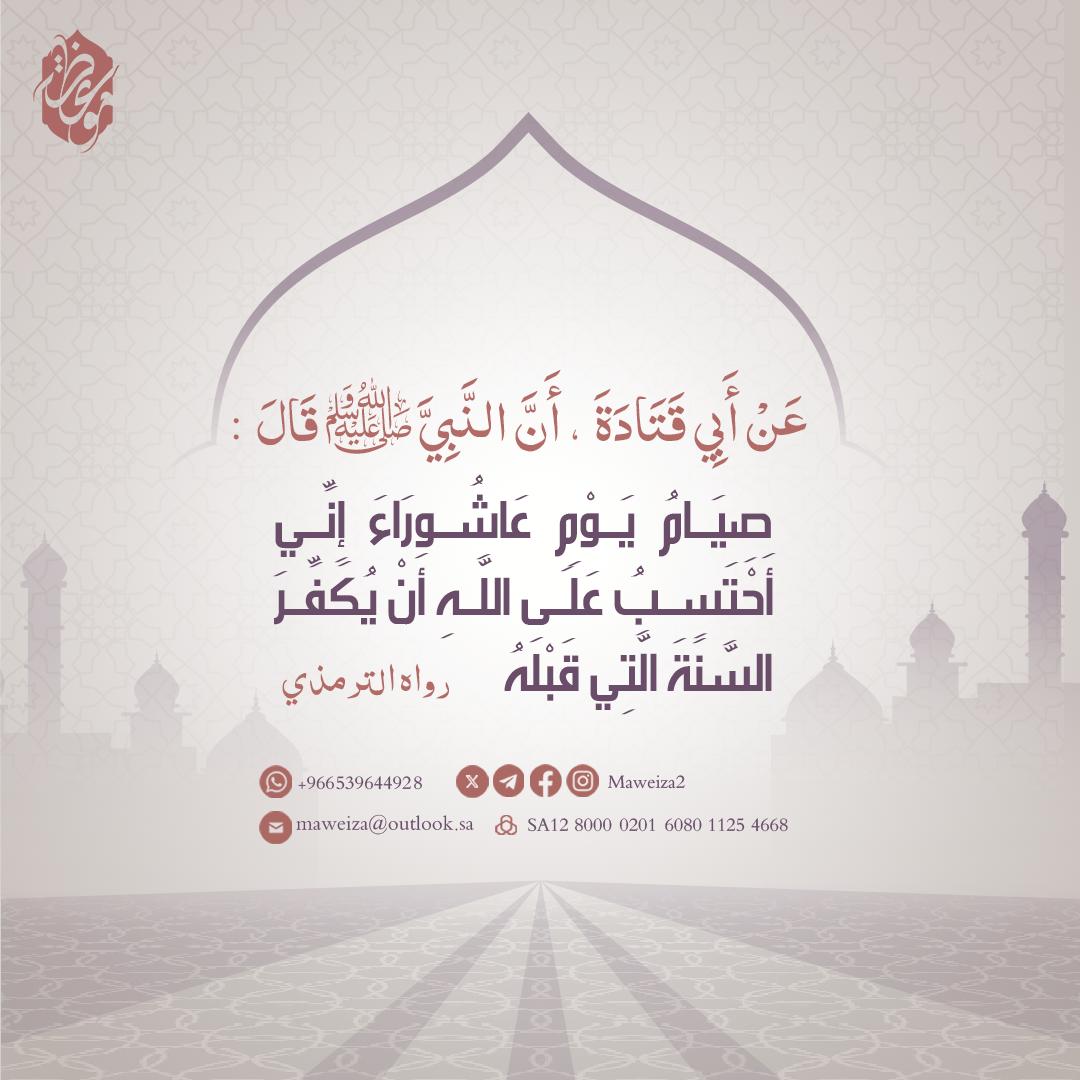 موعظة
عَنْ أَبِي قَتَادَةَ ، أَنَّ النَّبِيَّ ﷺ قَالَ :
صيَامُ يَوْمِ عَاشُورَاءَ إنِّي
أَحْتَسبُ عَلَى اللَّهِ أَنْ يُكَفِّرَ
السَّنَةَ الَّتِي قَبْلَهُ رواه الترمذي
+966539644928 Maweiza2
maweiza@outlook.sa SA12 8000 0201 6080 1125 4668